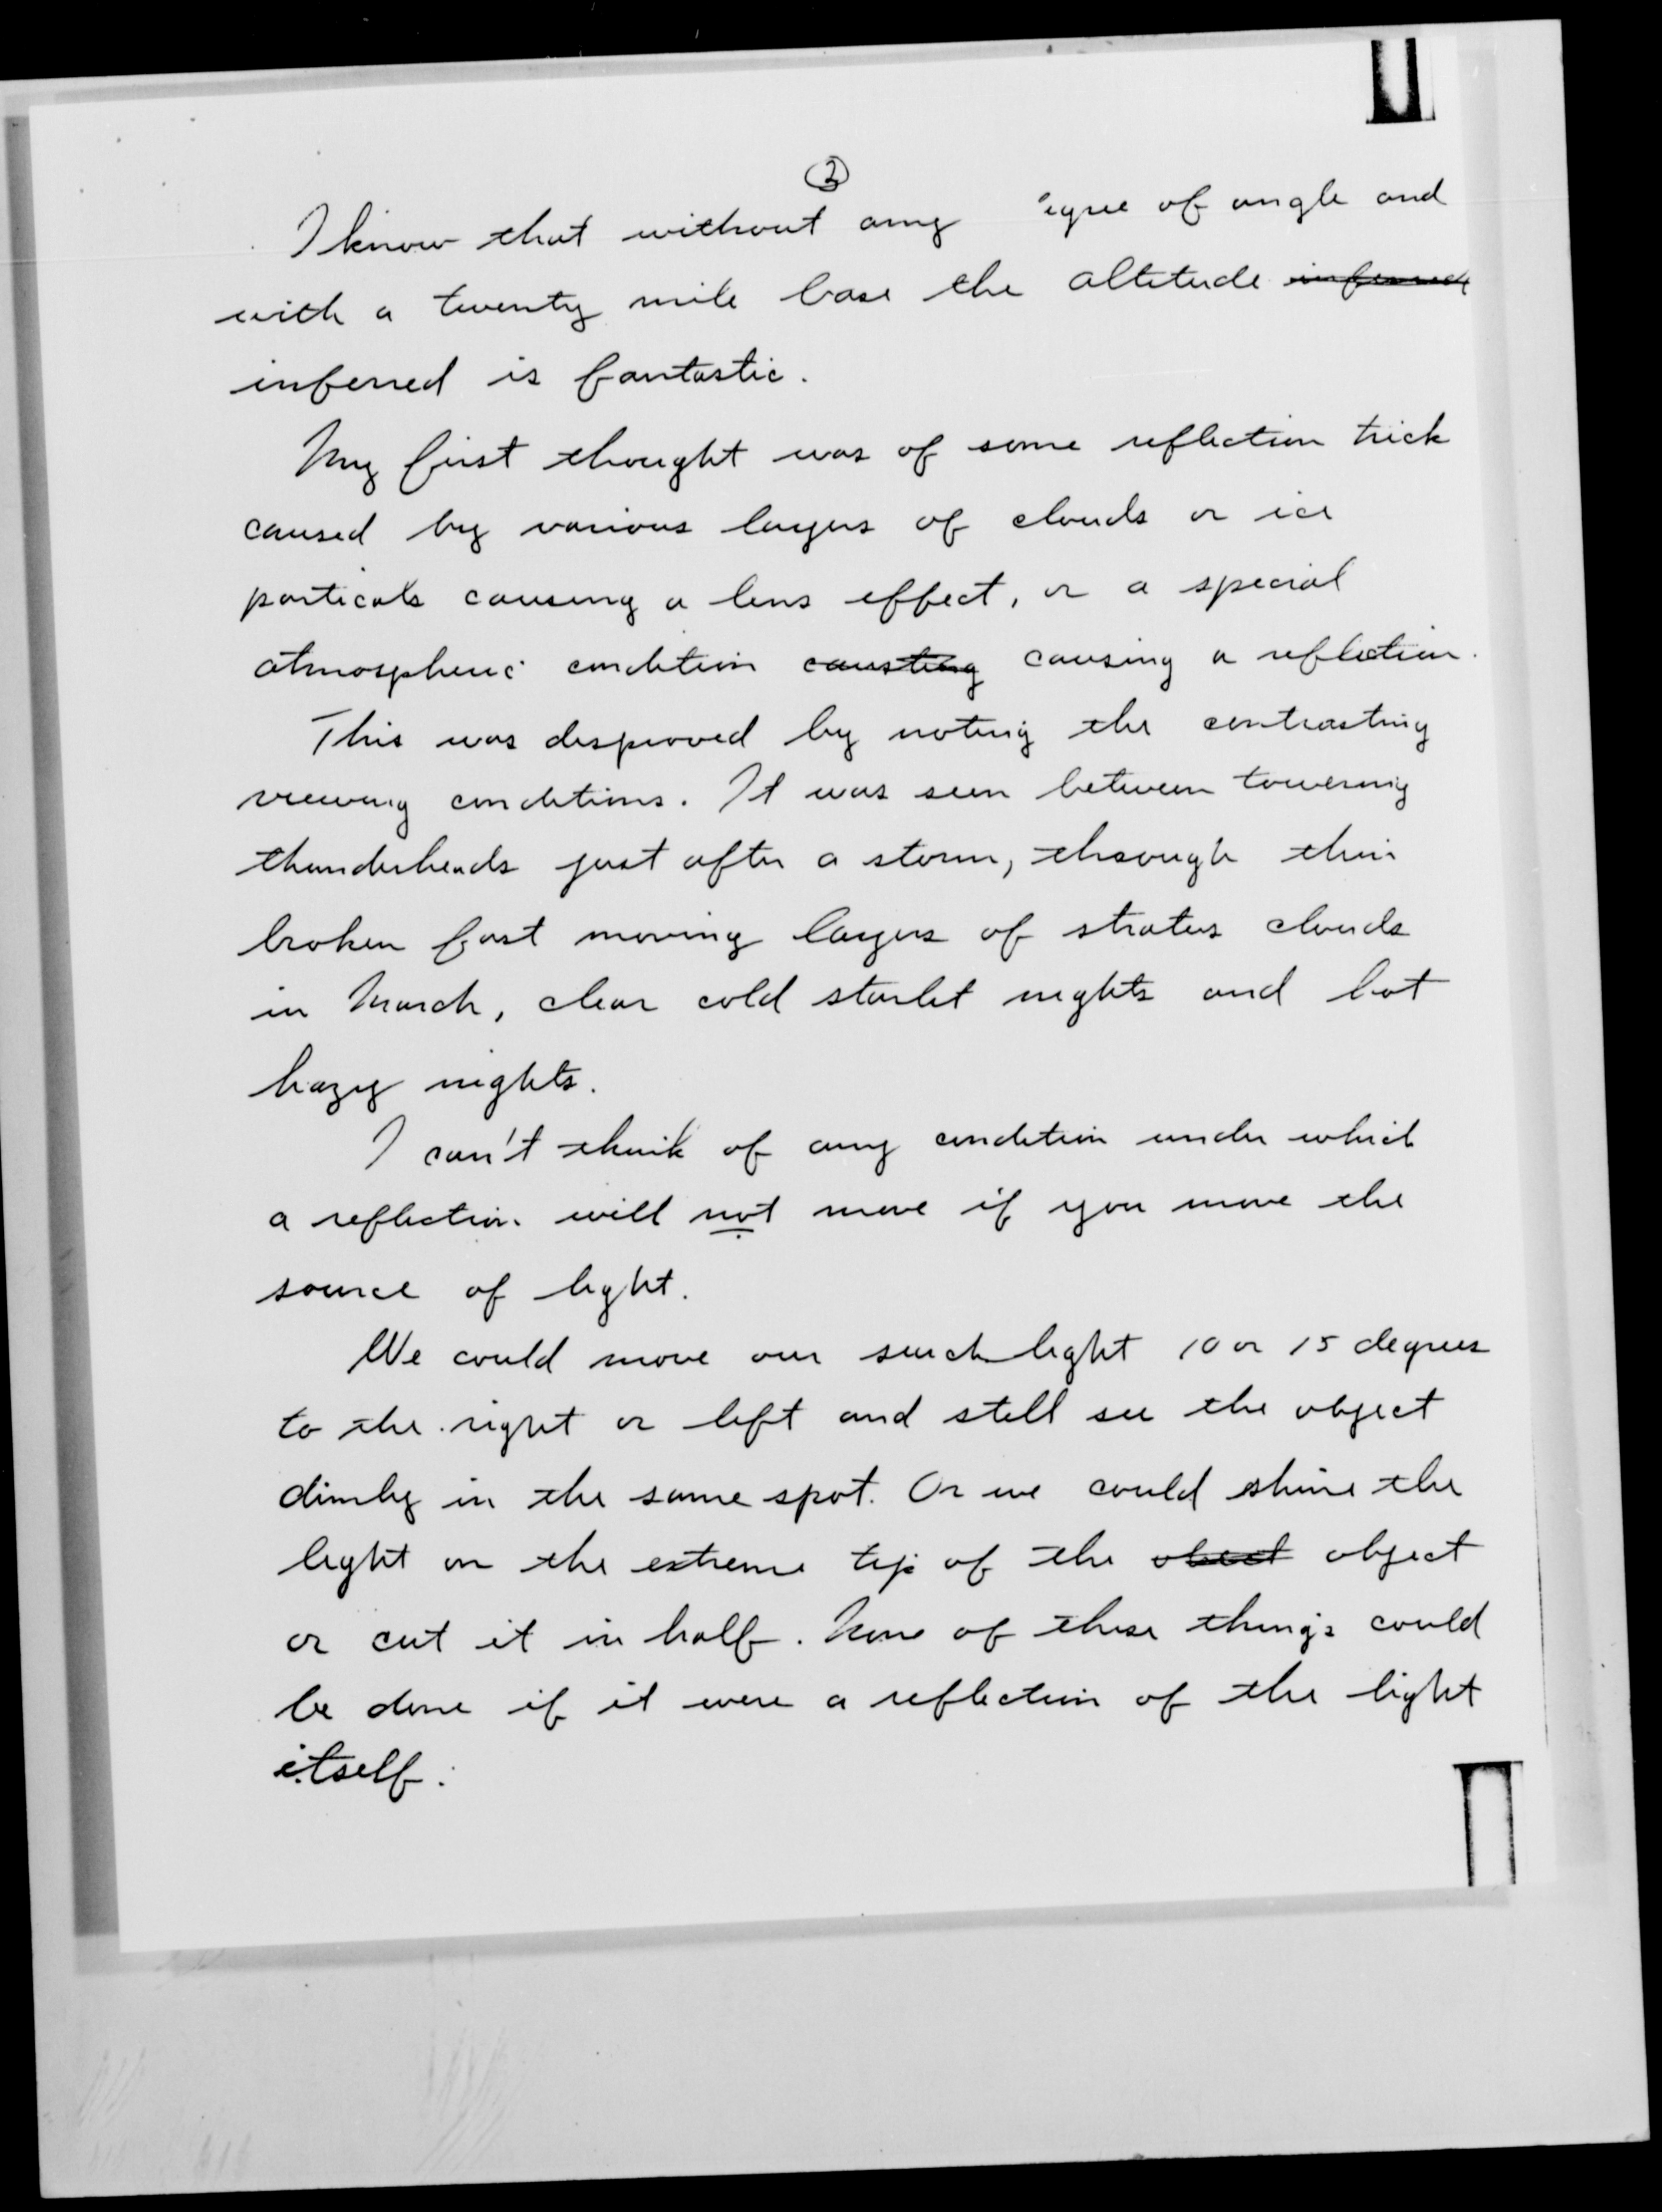 2
I know that without any egree of angle and
with a twenty mile base the altitude
inferred is fantastic.
My first thought was of some reflection trick
caused by various layers of clouds or ice
particals causing a lens effect, or a special
atmospheric condition causting causing a reflection.
This was disproved by noting the contrasting
viewing conditions. It was seen between towering
thunderheads just after a storm, through thin
broken fast moving layers of stratus clouds
in March, clear cold starlit nights and hot
hazy nights.
I can't think of any condition under which
a reflection will not move if you move the
source of light.
We could move our search light 10 or 15 degrees
to the right or left and still see the object
dimly in the same spot. Or we could shine the
light on the extreme tip of the obect object
or cut it in half. None of these things could
be done if it were a reflection of the light
itself.